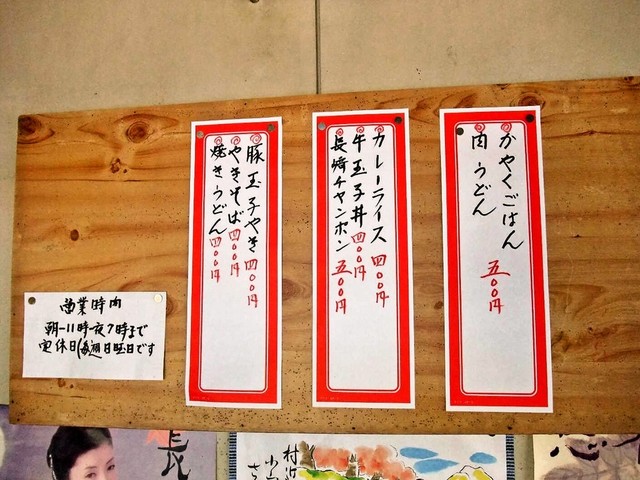 かやくごはん
肉うどん 五〇〇円
カレーライス 四〇〇円
牛玉子丼 四〇〇円
長崎チャンポン 五〇〇円
豚玉子やき 四〇〇円
やきそば 四〇〇円
焼きうどん 四〇〇円
営業時間
朝一11時〜夜7時まで
定休日(毎週日曜日です
長
村